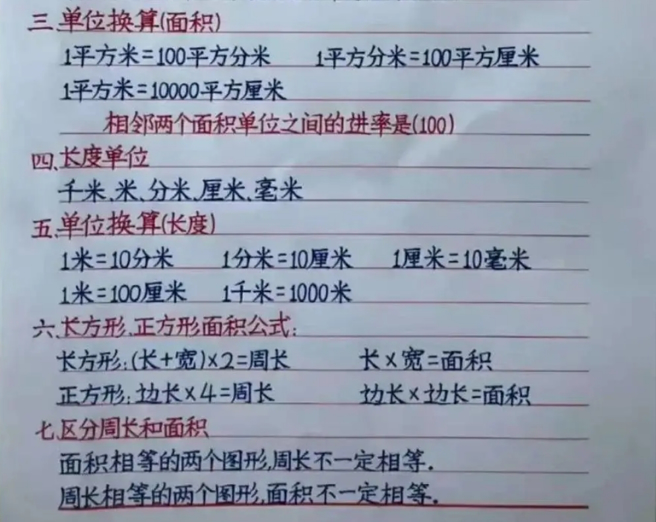 三.单位换算(面积)
1平方米=100平方分米 1平方分米=100平方厘米
1平方米=10000平方厘米
相邻两个面积单位之间的进率是(100)
四.长度单位
千米、米、分米、厘米、毫米
五.单位换算(长度)
1米=10分米 1分米=10厘米 1厘米=10毫米
1米=100厘米 1千米=1000米
六、长方形、正方形面积公式:
长方形:(长+宽)×2=周长 长×宽=面积
正方形:边长×4=周长 边长×边长=面积
七.区分周长和面积
面积相等的两个图形,周长不一定相等.
周长相等的两个图形,面积不一定相等.